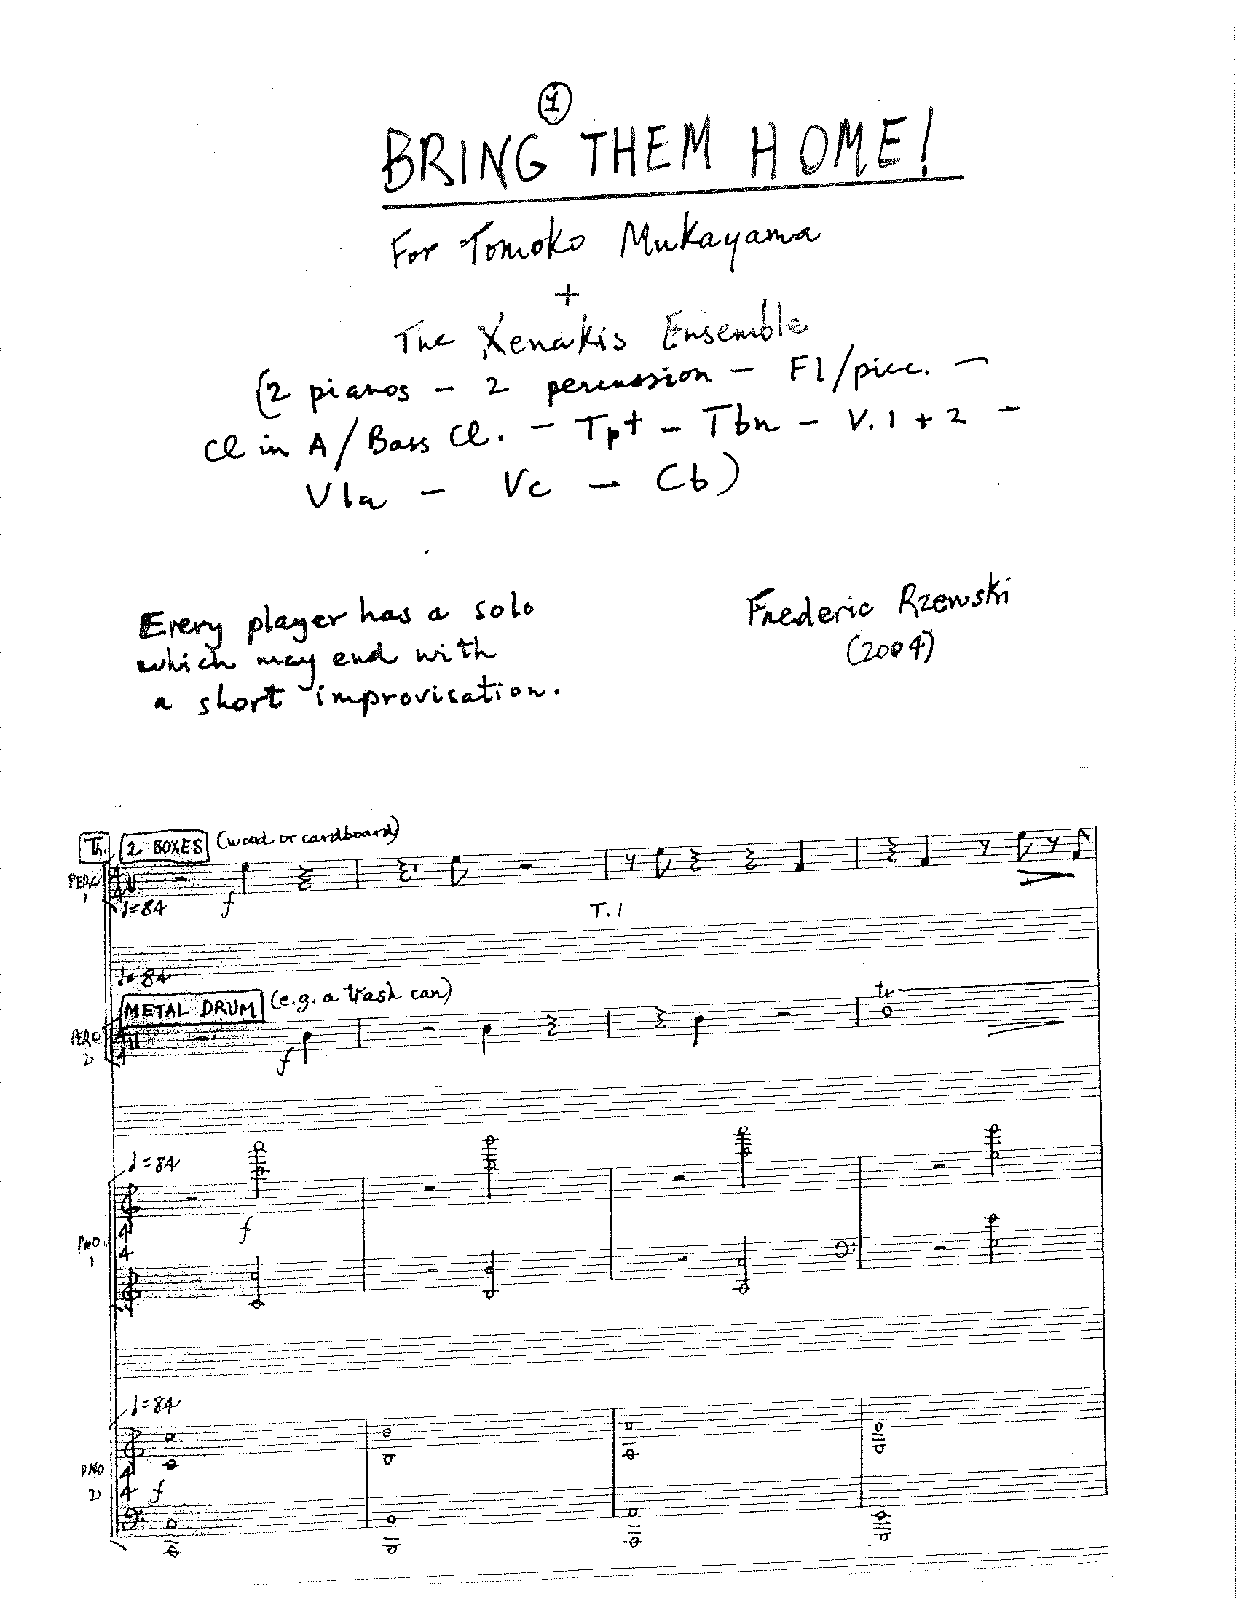 1
BRING THEM HOME!
For Tomoko Mukayama
+
The Xenakis Ensemble
(2 pianos - 2 percussion - Fl/picc. -
Cl in A/Bass Cl. - Tpt - Tbn - V.1 + 2 -
Vla - Vc - Cb)
Every player has a solo
which may end with
a short improvisation.
Frederic Rzewski
(2004)
Th. 2 BOXES (wood or cardboard)
PERC 1
4 4
♩=84 f T.1
♩=84
METAL DRUM (e.g. a trash can)
tr
PERC 2
4 4
f
♩=84
PNO. 1
4 4
f
♩=84
PNO 2
4 4
f